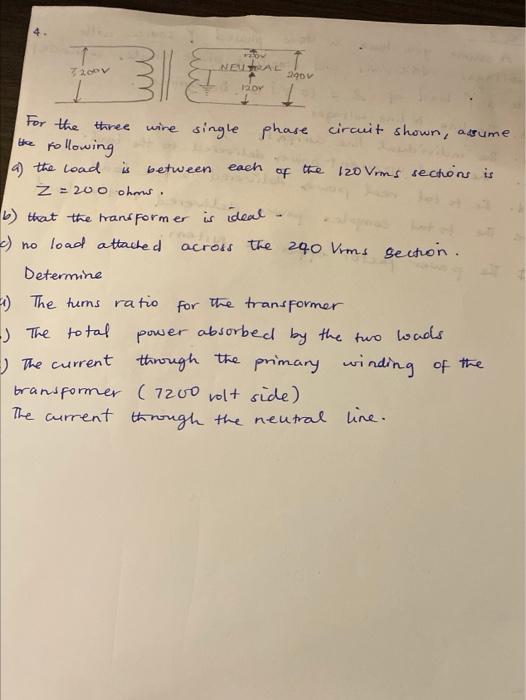 4.
120V
7200V
NEUTRAL
240V
120V
For the three wire single phase circuit shown, assume
the following
a) the load is between each of the 120 Vrms sections is
Z = 200 ohms.
b) that the transformer is ideal -
c) no load attached across the 240 Vrms section.
Determine
) The turns ratio for the transformer
) The total power absorbed by the two loads
) The current through the primary winding of the
transformer ( 7200 volt side)
The current through the neutral line.